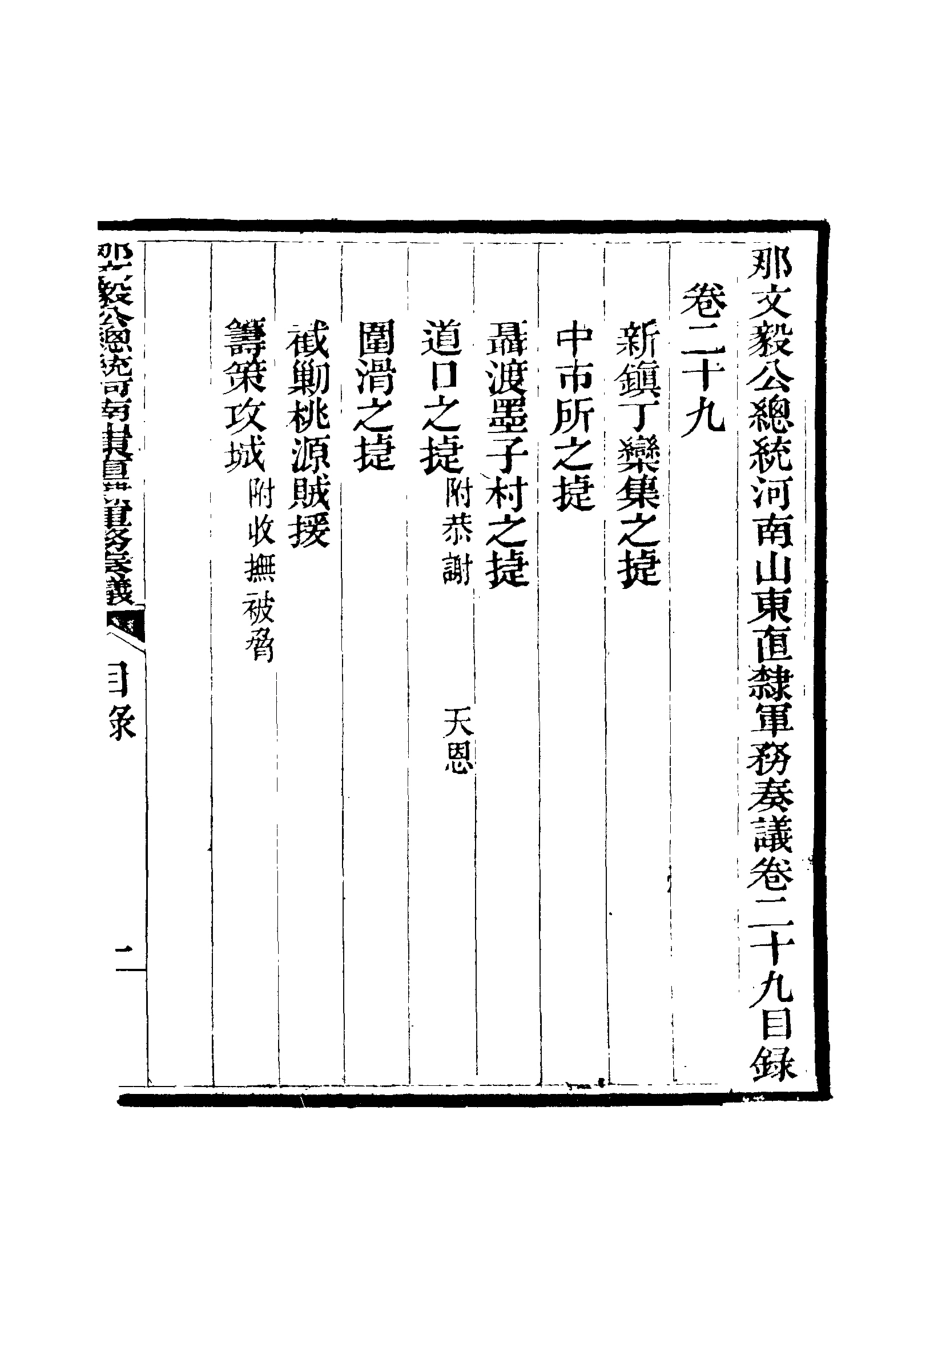 那文毅公總統河南山東直隸軍務奏議卷二十九目録
卷二十九
新鎮丁欒集之捷
中市所之捷
聶渡墨子村之捷
道口之捷 附恭謝 天恩
圍滑之捷
截勦桃源賊援
籌策攻城 附收撫被脅
那文毅公總統河南
軍務奏議
目彔
二